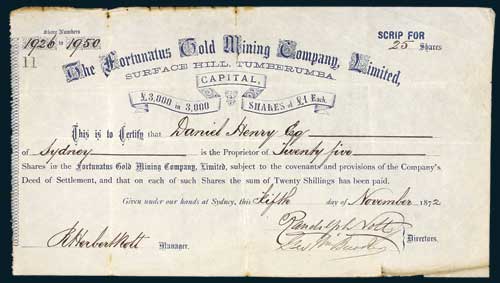 Share Numbers
1926 to 1950
SCRIP FOR
25 Shares
11
The Fortunatus Gold Mining Company, Limited,
SURFACE HILL, TUMBERUMBA.
CAPITAL,
£3,000 in 3,000 SHARES of £1 Each.
This is to Certify that Daniel Henry Esq
of Sydney is the Proprietor of Twenty five
Shares in the Fortunatus Gold Mining Company, Limited, subject to the covenants and provisions of the Company's
Deed of Settlement, and that on each of such Shares the sum of Twenty Shillings has been paid.
Given under our hands at Sydney, this Fifth day of November 1872
Randolph Nott
R Herbert Nott Manager.
Directors.